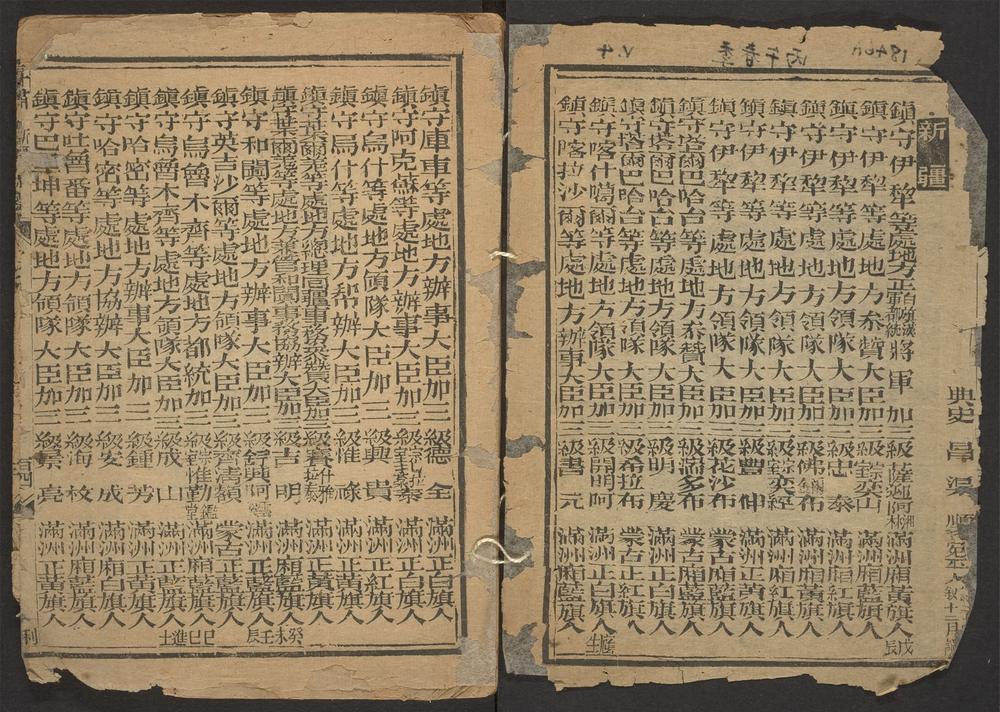 1846A 丙午春季 V.4
新疆
鎮守伊犂等處地方將軍加三級薩迎阿滿洲廂黃旗人戊辰
鎮守伊犂等處地方叅贊大臣加三級宗室奕山滿洲廂藍旗人
鎮守伊犂等處地方領隊大臣加三級忠泰滿洲廂紅旗人
鎮守伊犂等處地方領隊大臣加三級佛布滿洲正藍旗人
鎮守伊犂等處地方領隊大臣加三級宗室奕經滿洲廂紅旗人
鎮守伊犂等處地方領隊大臣加三級豐伸滿洲正黃旗人
鎮守伊犂等處地方領隊大臣加三級花沙布蒙古廂藍旗人
鎮守塔爾巴哈台等處地方叅贊大臣加三級滿多布蒙古廂藍旗人
鎮守塔爾巴哈台等處地方領隊大臣加三級明慶滿洲正藍旗人
鎮守塔爾巴哈台等處地方領隊大臣加三級希拉布蒙古正紅旗人
鎮守喀什噶爾等處地方領隊大臣加三級開明阿滿洲正白旗人廕生
鎮守喀拉沙爾等處地方辦事大臣加三級書元滿洲廂藍旗人
典史
鎮守庫車等處地方辦事大臣加三級德全滿洲正白旗人
鎮守阿克蘇等處地方辦事大臣加三級宗室扎拉芬泰滿洲正黃旗人
鎮守烏什等處地方領隊大臣加三級興貴滿洲正紅旗人
鎮守烏什等處地方幫辦大臣加三級惟祿滿洲正黃旗人
鎮守葉爾羌等處地方總理回疆事務叅贊大臣加三級賽什雅勒泰滿洲正黃旗人
鎮守葉爾羌等處地方兼管和闐事務協辦大臣加三級吉明滿洲廂藍旗人癸未
鎮守和闐等處地方辦事大臣加三級舒興阿滿洲正藍旗人壬辰
鎮守英吉沙爾等處地方領隊大臣加三級齊清額蒙古正藍旗人
鎮守烏魯木齊等處地方都統加三級宗室惟勤滿洲廂藍旗人己巳
鎮守烏魯木齊等處地方領隊大臣加三級成山滿洲正藍旗人進士
鎮守哈密等處地方辦事大臣加三級鍾芳滿洲正黃旗人
鎮守哈密等處地方協辦大臣加三級安成滿洲廂白旗人
鎮守吐魯番等處地方領隊大臣加三級海枚滿洲廂藍旗人
鎮守巴里坤等處地方領隊大臣加三級景亮滿洲正黃旗人